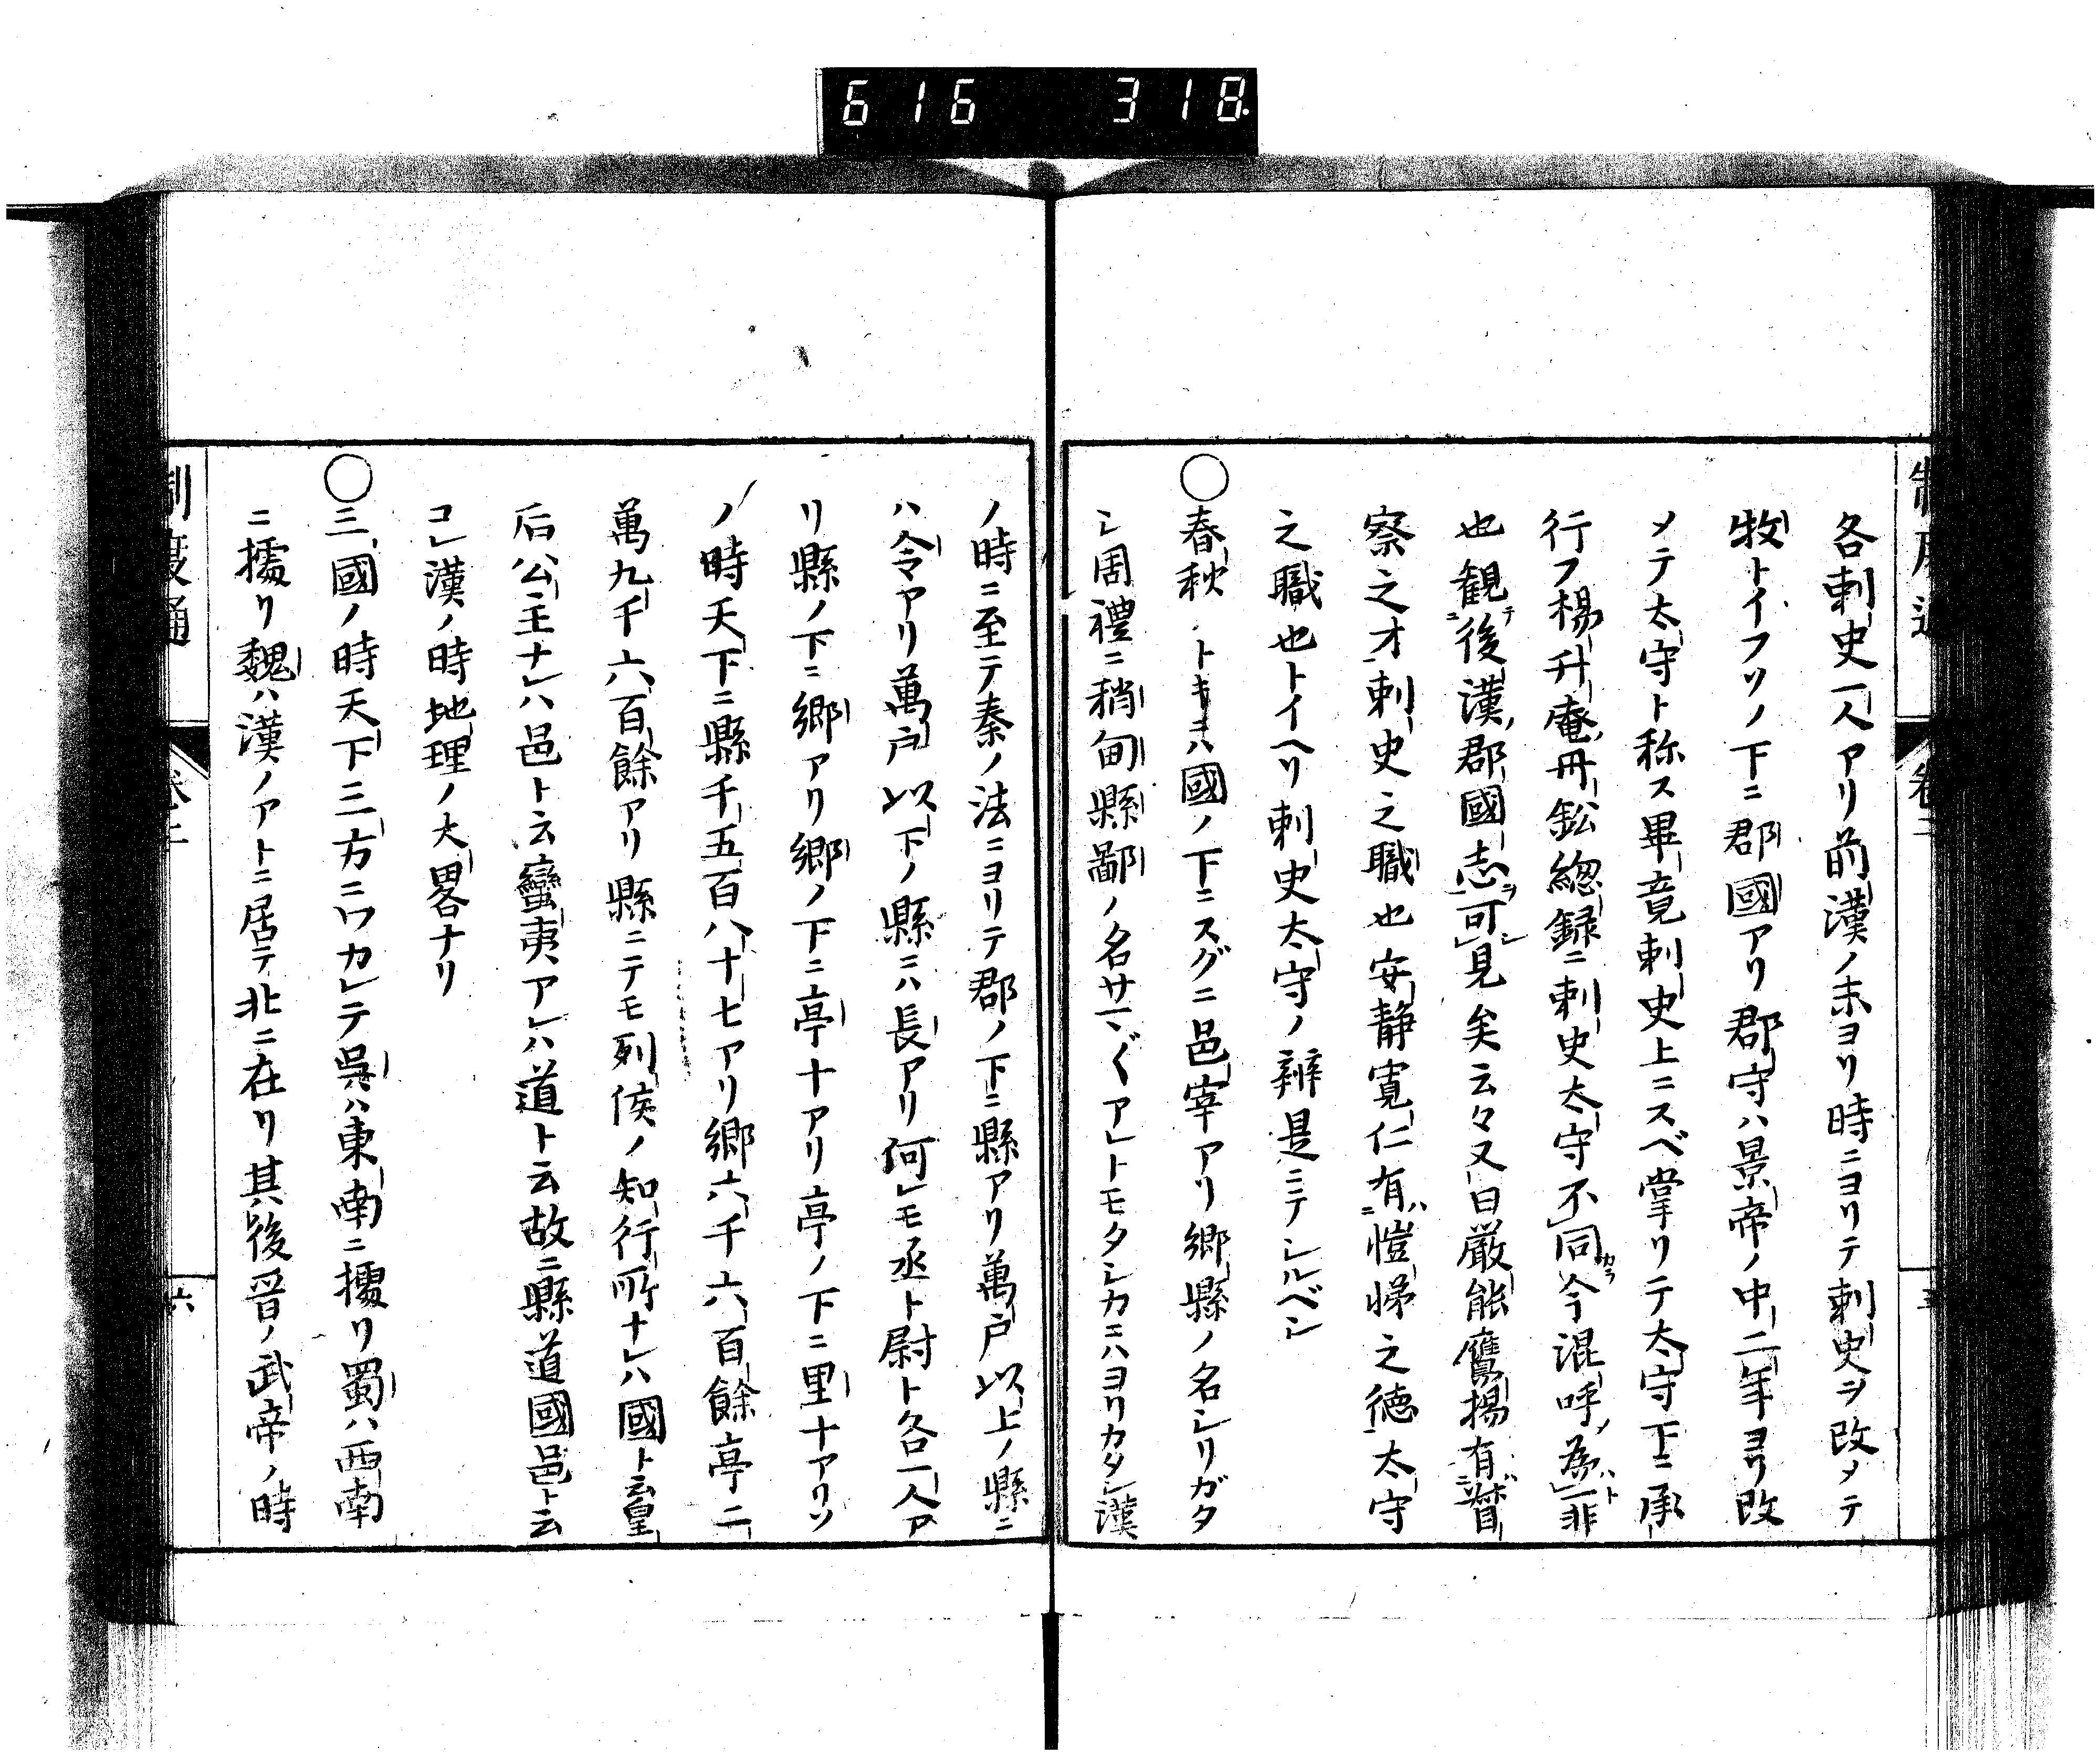 616 318
各刺史一人アリ前漢ノ末ヨリ時ニヨリテ刺史ヲ改メテ
牧トイフソノ下ニ郡國アリ郡守ハ景帝ノ中二年ヨリ改
メテ太守ト称ス畢竟刺史上ニスベ掌リテ太守下ニ承
行フ楊升庵丹鉛總録ニ刺史太守不同今混呼為一非
也観後漢郡國志可見矣云々又曰厳能鷹揚有督
察之才刺史之職也安静寛仁有愷悌之徳太守
之職也トイヘリ刺史太守ノ辨是ニテシルベシ
○春秋ノトキハ國ノ下ニスグニ邑宰アリ郷縣ノ名シリガタ
シ周禮ニ稍甸縣鄙ノ名サマ〲アレトモタシカニハヨリカタシ漢
ノ時ニ至テ秦ノ法ニヨリテ郡ノ下ニ縣アリ萬戸以上ノ縣ニ
ハ令アリ萬戸以下ノ縣ニハ長アリ何レモ丞ト尉ト各一人ア
リ縣ノ下ニ郷アリ郷ノ下ニ亭十アリ亭ノ下ニ里十アリソ
ノ時天下ニ縣千五百八十七アリ郷六千六百餘亭二
萬九千六百餘アリ縣ニテモ列侯ノ知行所ナレハ國ト云皇
后公主ナレハ邑ト云蠻夷アレハ道ト云故ニ縣道國邑ト云
コレ漢ノ時地理ノ大畧ナリ
○三國ノ時天下三方ニワカレテ呉ハ東南ニ據リ蜀ハ西南
ニ據リ魏ハ漢ノアトニ居テ北ニ在リ其後晉ノ武帝ノ時
制度通
卷二
六